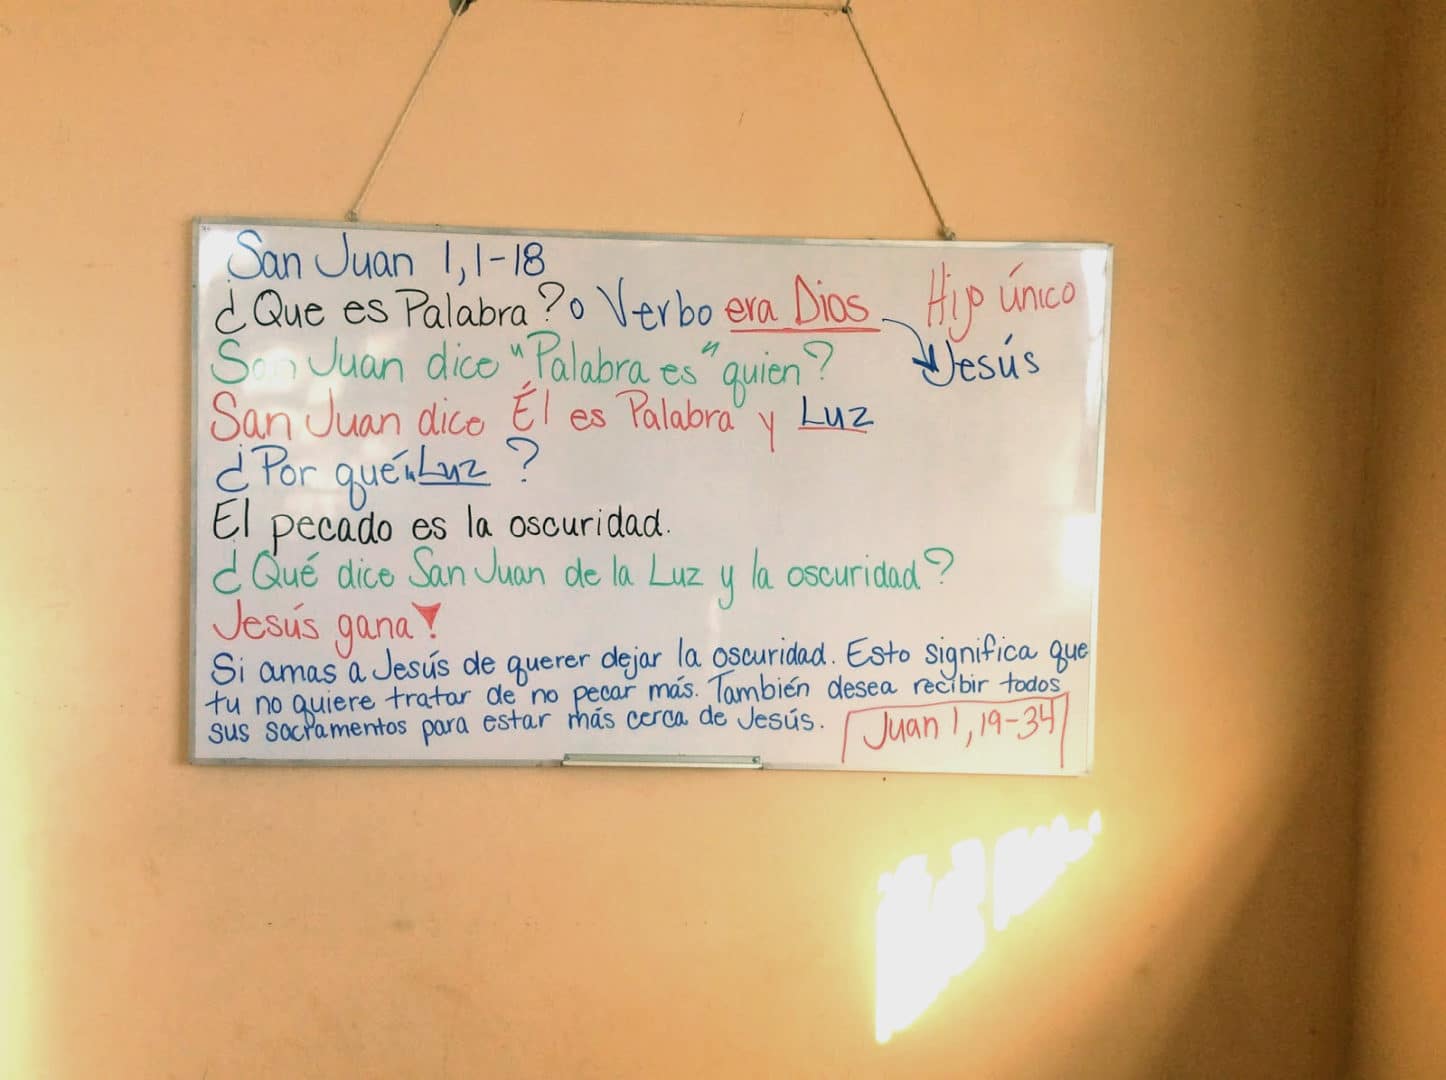 San Juan 1,1-18
¿Que es Palabra? o Verbo era Dios Hijo único
San Juan dice "Palabra es" quien? Jesús
San Juan dice Él es Palabra y Luz
¿Por qué Luz?
El pecado es la oscuridad.
¿Qué dice San Juan de la Luz y la oscuridad?
Jesús gana!
Si amas a Jesús de querer dejar la oscuridad. Esto significa que
tu no quiere tratar de no pecar más. También desea recibir todos
sus sacramentos para estar más cerca de Jesús.
Juan 1,19-34